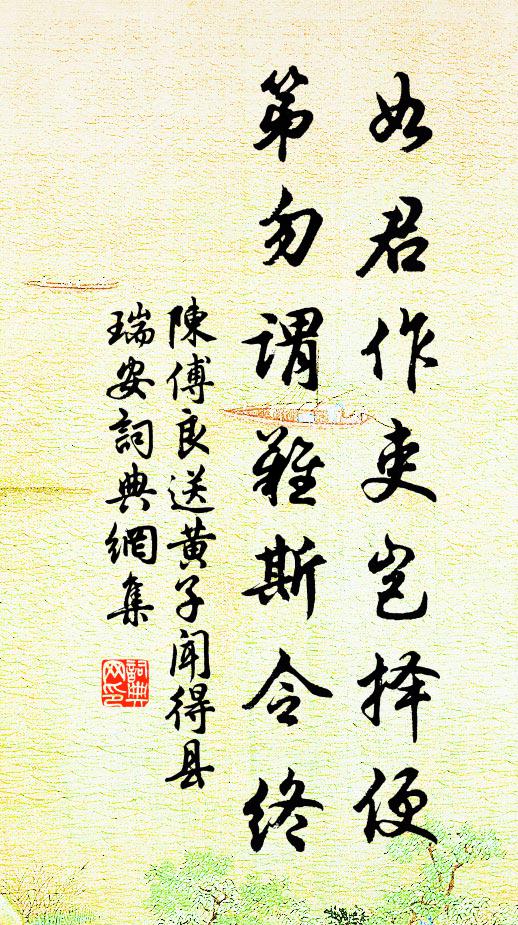 如君作吏岂择便
第勿谓难斯令终
陳傅良送黄子闻得县
瑞安詞典網集
詞典网印